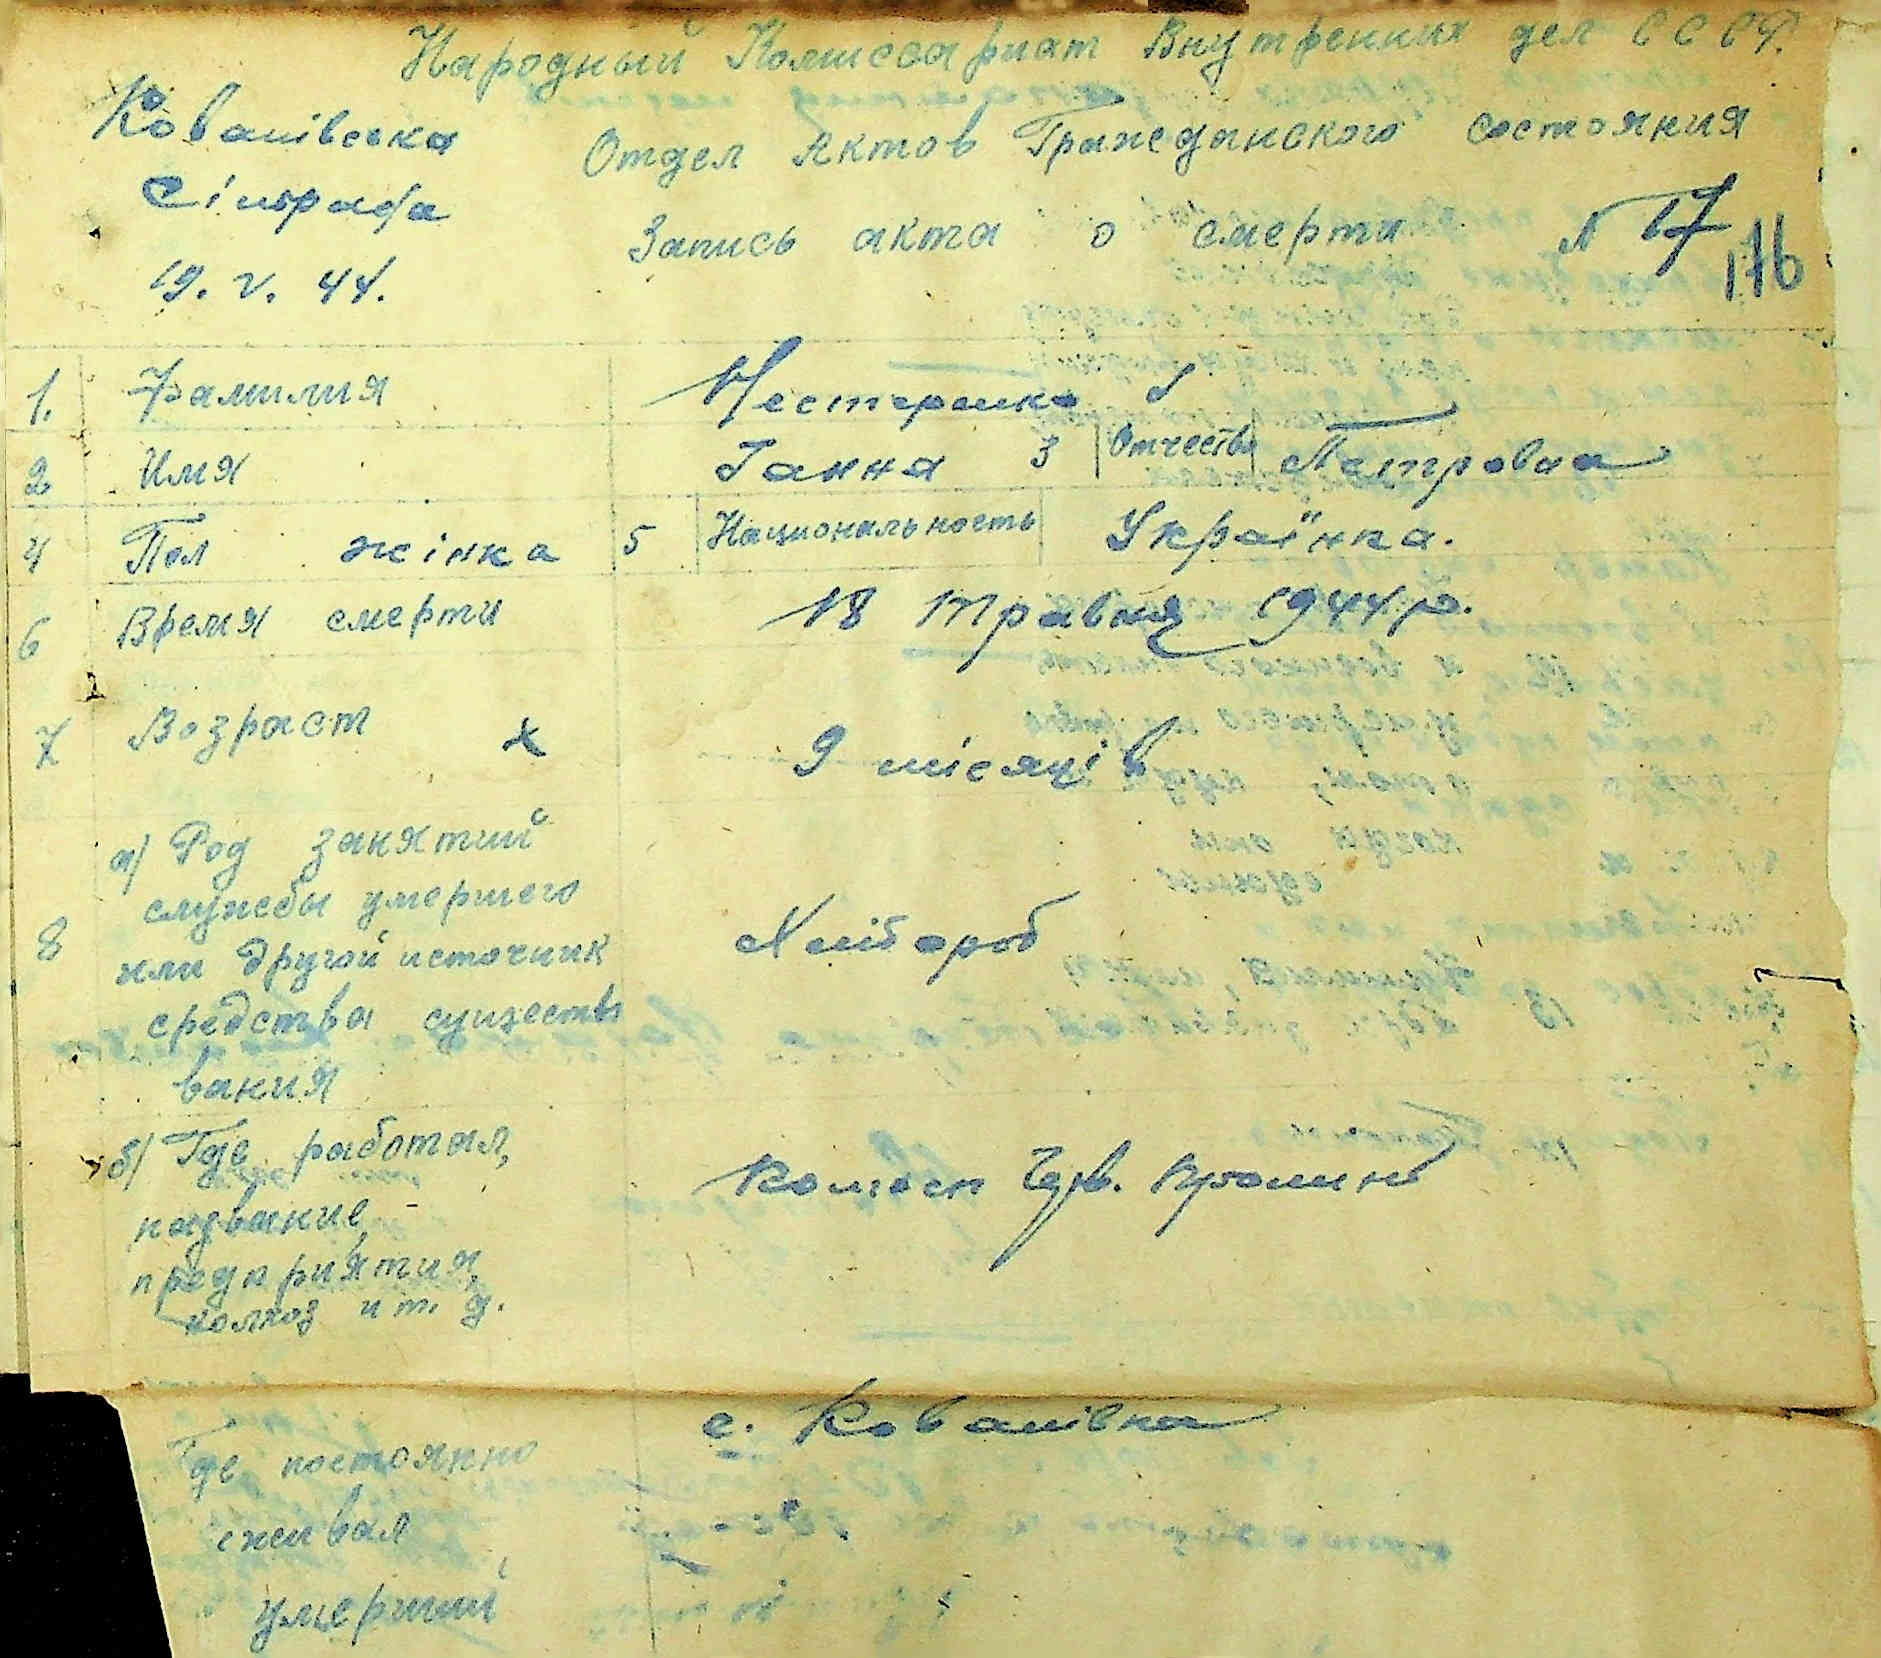 Народный Комиссариат Внутренних дел СССР.
Ковалівська
Отдел Актов Гражданского состояния
Сільрада
Запись акта о смерти № 17
176
19. V. 44.
1. Фамилия Нестеренко
2 Имя Ганна 3 Отчество Петровна
4 Пол жінка 5 Национальность Українка.
6 Время смерти 18 травня 1944 р.
7 Возраст х 9 місяців
а) Род занятий
службы умершего
8 или другой источник Хлібороб
средства существо
вания
б) Где работал, Колгосп Черв. Промінь
название
предприятия,
колхоз и т. д.
с. Ковалівка
Где постоянно
жывал
умерший